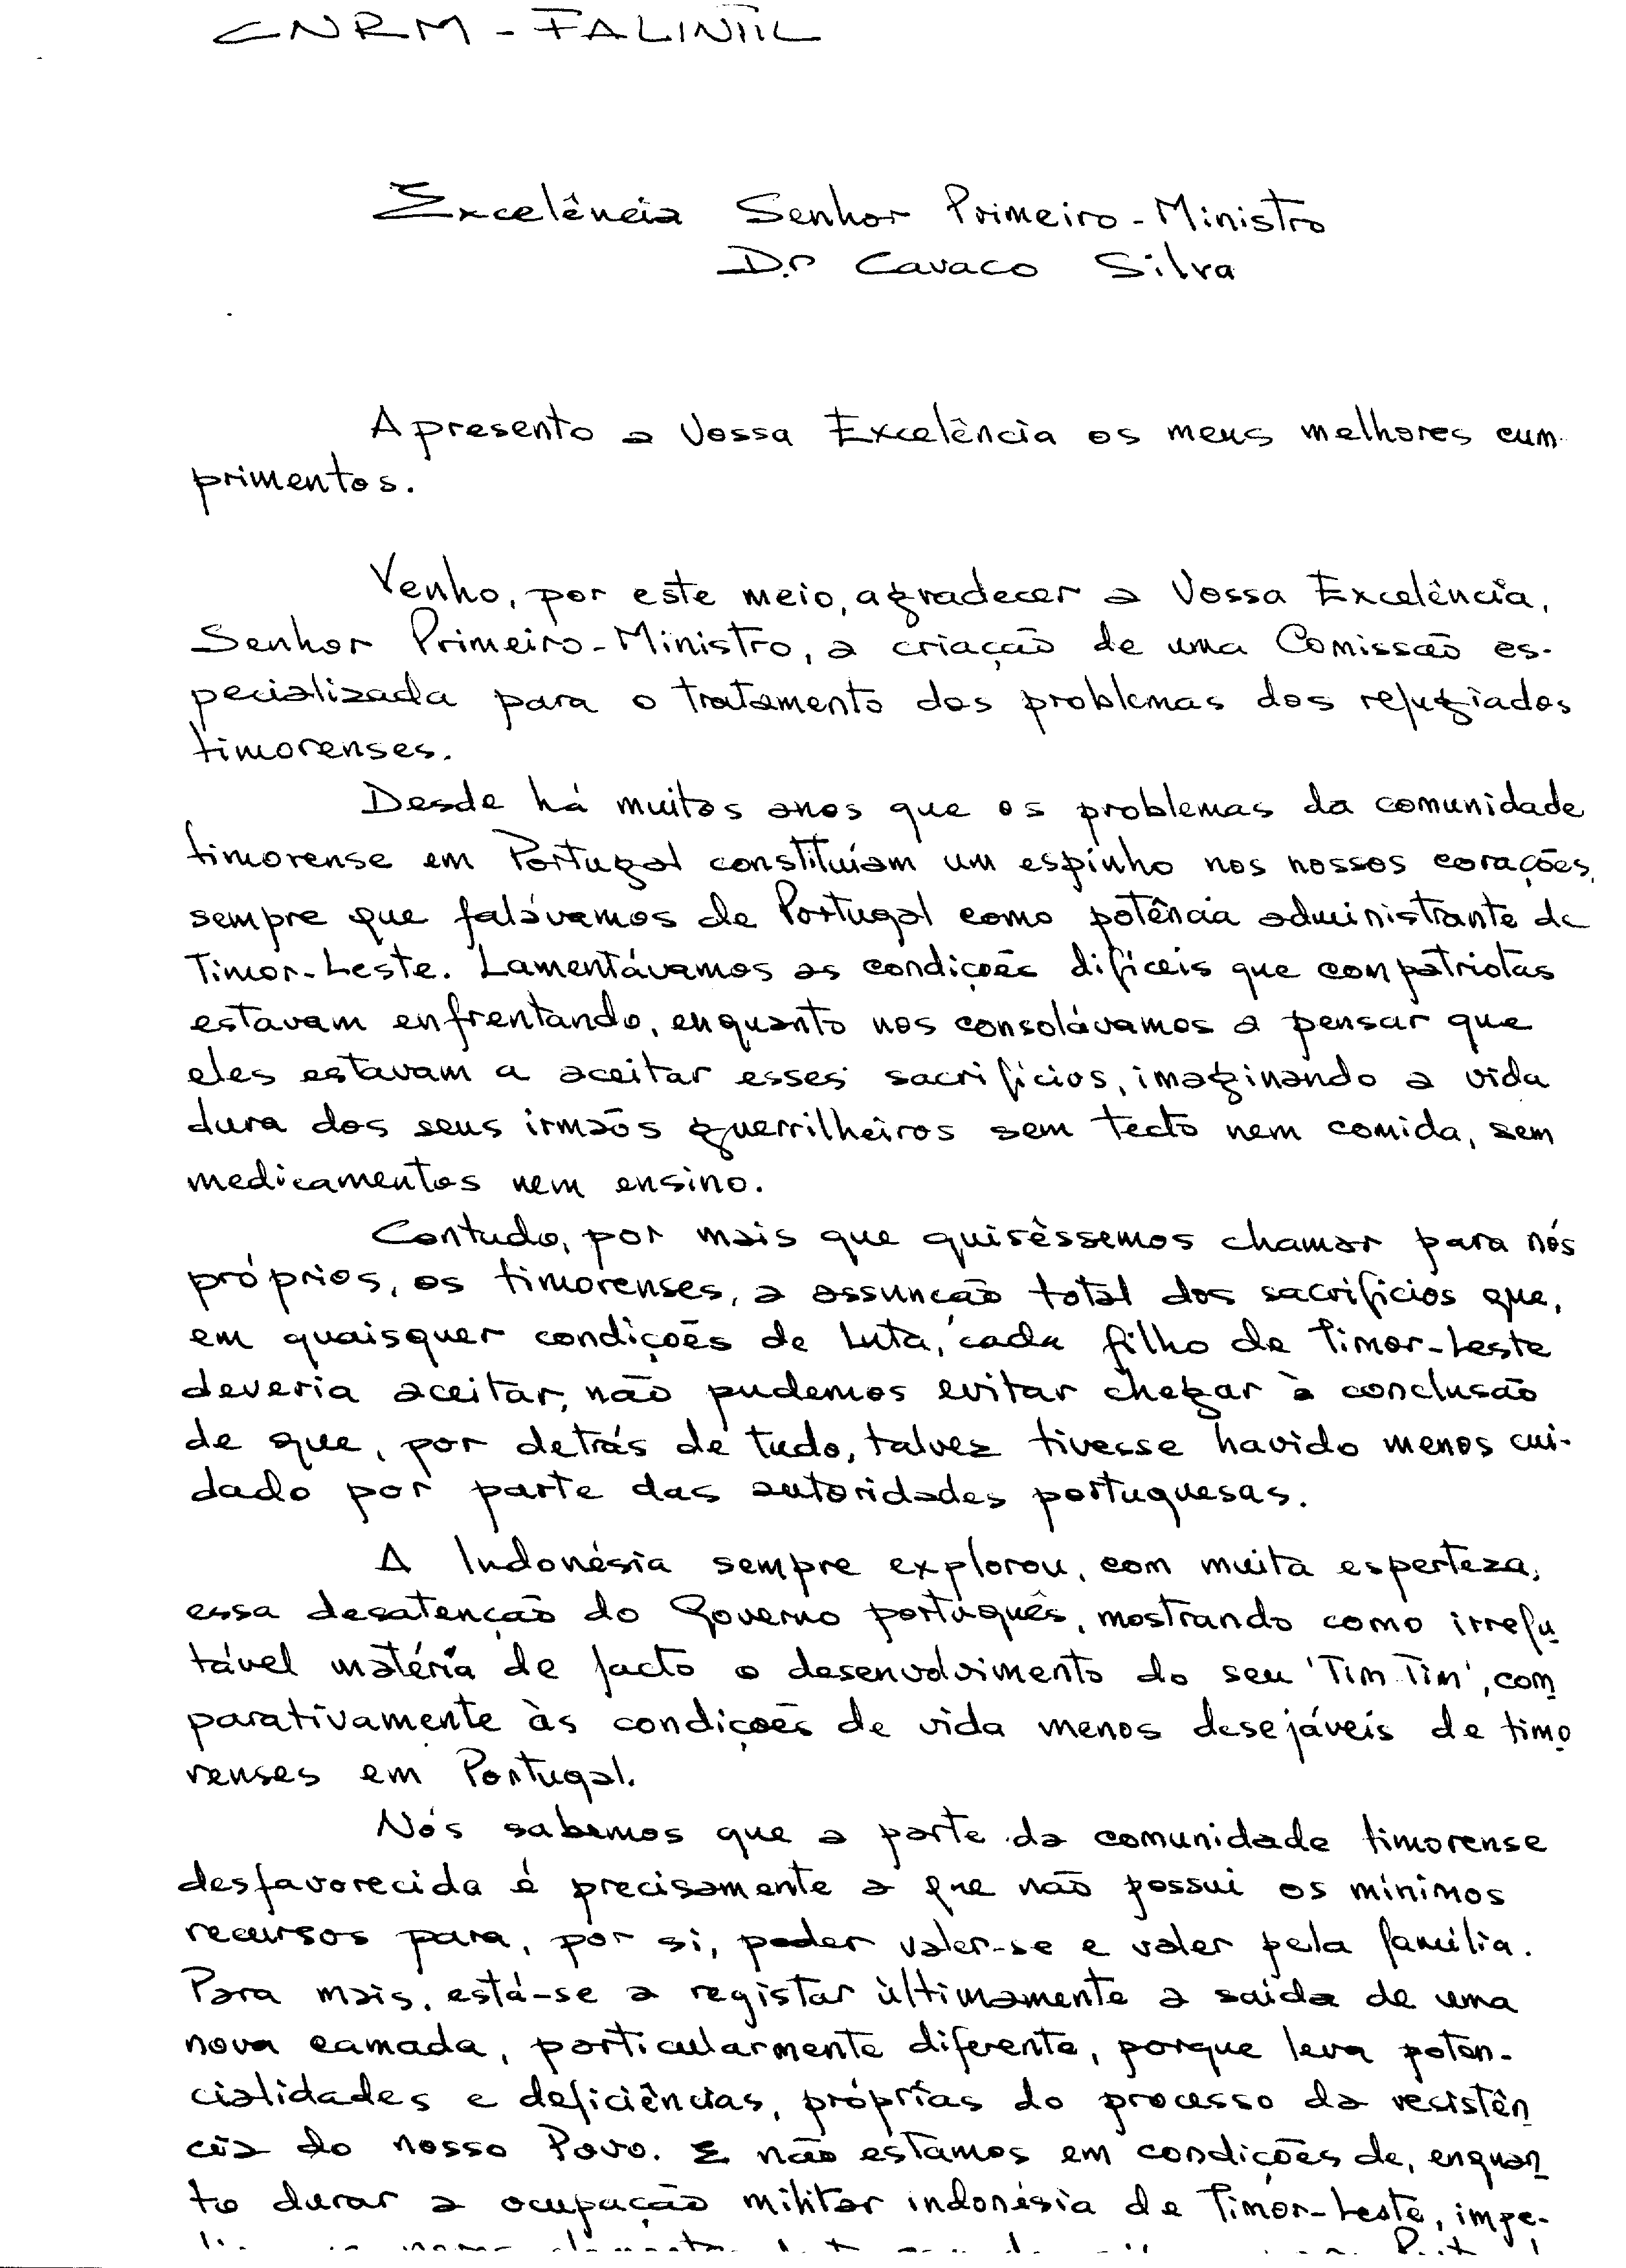 CNRM - FALINTIL
Excelência Senhor Primeiro-Ministro
Dr. Cavaco Silva
Apresento a Vossa Excelência os meus melhores cum-
primentos.
Venho, por este meio, agradecer a Vossa Excelência,
Senhor Primeiro-Ministro, a criação de uma Comissão es-
pecializada para o tratamento dos problemas dos refugiados
timorenses.
Desde há muitos anos que os problemas da comunidade
timorense em Portugal constituíam um espinho nos nossos corações,
sempre que falávamos de Portugal como potência administrante de
Timor-Leste. Lamentávamos as condições difíceis que compatriotas
estavam enfrentando, enquanto nos consolávamos a pensar que
eles estavam a aceitar esses sacrifícios, imaginando a vida
dura dos seus irmãos guerrilheiros sem tecto nem comida, sem
medicamentos nem ensino.
Contudo, por mais que quiséssemos chamar para nós
próprios, os timorenses, a assunção total dos sacrifícios que,
em quaisquer condições de luta, cada filho de Timor-Leste
deveria aceitar, não pudemos evitar chegar à conclusão
de que, por detrás de tudo, talvez tivesse havido menos cui-
dado por parte das autoridades portuguesas.
A Indonésia sempre explorou, com muita esperteza,
essa desatenção do Governo português, mostrando como irrefu
tável matéria de facto o desenvolvimento do seu 'Tim Tim', com
parativamente às condições de vida menos desejáveis de timo
renses em Portugal.
Nós sabemos que a parte da comunidade timorense
desfavorecida é precisamente a que não possui os mínimos
recursos para, por si, poder valer-se e valer pela família.
Para mais, está-se a registar ùltimamente a saída de uma
nova camada, particularmente diferente, porque leva poten-
cialidades e deficiências, próprias do processo da resistên
cia do nosso Povo. E não estamos em condições de, enquan
to durar a ocupação militar indonésia de Timor-Leste, impe-